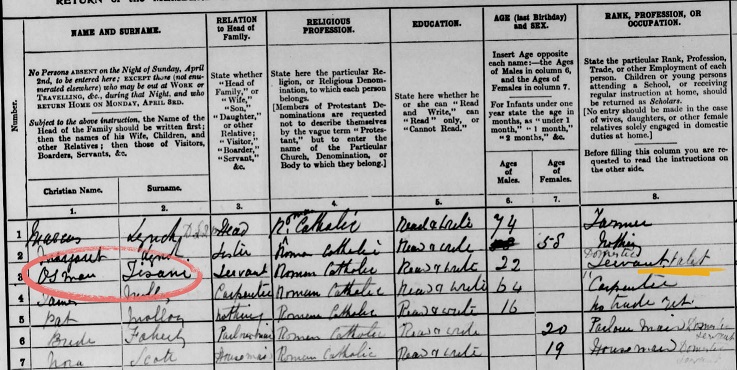 NAME AND SURNAME.
RELATION to Head of Family.
RELIGIOUS PROFESSION.
EDUCATION.
AGE (last Birthday) and SEX.
RANK, PROFESSION, OR OCCUPATION.
Number.
No Persons ABSENT on the Night of Sunday, April
2nd, to be entered here; EXCEPT those (not enu-
merated elsewhere) who may be out at WORK or
TRAVELLING, &c., during that Night, and who
RETURN HOME ON MONDAY, APRIL 3RD.
Subject to the above instruction, the Name of
the Head of the Family should be written first;
then the names of his Wife, Children, and
other Relatives; then those of Visitors,
Boarders, Servants, &c.
Christian Name.
Surname.
State whether
"Head of
Family," or
"Wife,"
"Son,"
"Daughter,"
or other
Relative;
"Visitor,"
"Boarder,"
"Servant,"
&c.
State here the particular Re-
ligion, or Religious Denom-
ination, to which each person
belongs.
[Members of Protestant De-
nominations are requested
not to describe themselves
by the vague term "Protes-
tant," but to enter the
name of the Particular
Church, Denomination, or
Body to which they belong.]
State here whether he
or she can "Read and
Write," can "Read"
only, or "Cannot Read."
Insert Age opposite
each name:—the Ages
of Males in column 6,
and the Ages of
Females in column 7.
For Infants under one
year state the age in
months, as "under 1
month," "1 month,"
"2 months," &c.
Ages of Males.
Ages of Females.
State the particular Rank, Profession,
Trade, or other Employment of each
person. Children or young persons
attending a School, or receiving
regular instruction at home, should
be returned as Scholars.
[No entry should be made in the
case of wives, daughters, or other
female relatives solely engaged in
domestic duties at home.]
Before filling this column you are re-
quested to read the instructions on
the other side.
1. 2. 3. 4. 5. 6. 7. 8.
1 Lynch Head R. Catholic Read & write 74 Farmer
2 Margaret Lynch Sister Roman Catholic Read & write 58 Nothing
3 Servant Roman Catholic Read & write 22 Domestic Servant Valet
4 James Carpenter Roman Catholic Read & write 64 Carpenter
5 Pat Molloy nothing Roman Catholic Read & write 16 no trade yet
6 Bride Faherty Parlourmaid Roman Catholic Read & write 20 Parlour Maid Domestic Servant
7 Nora Scott Housemaid Roman Catholic Read & write 19 Housemaid Domestic Servant